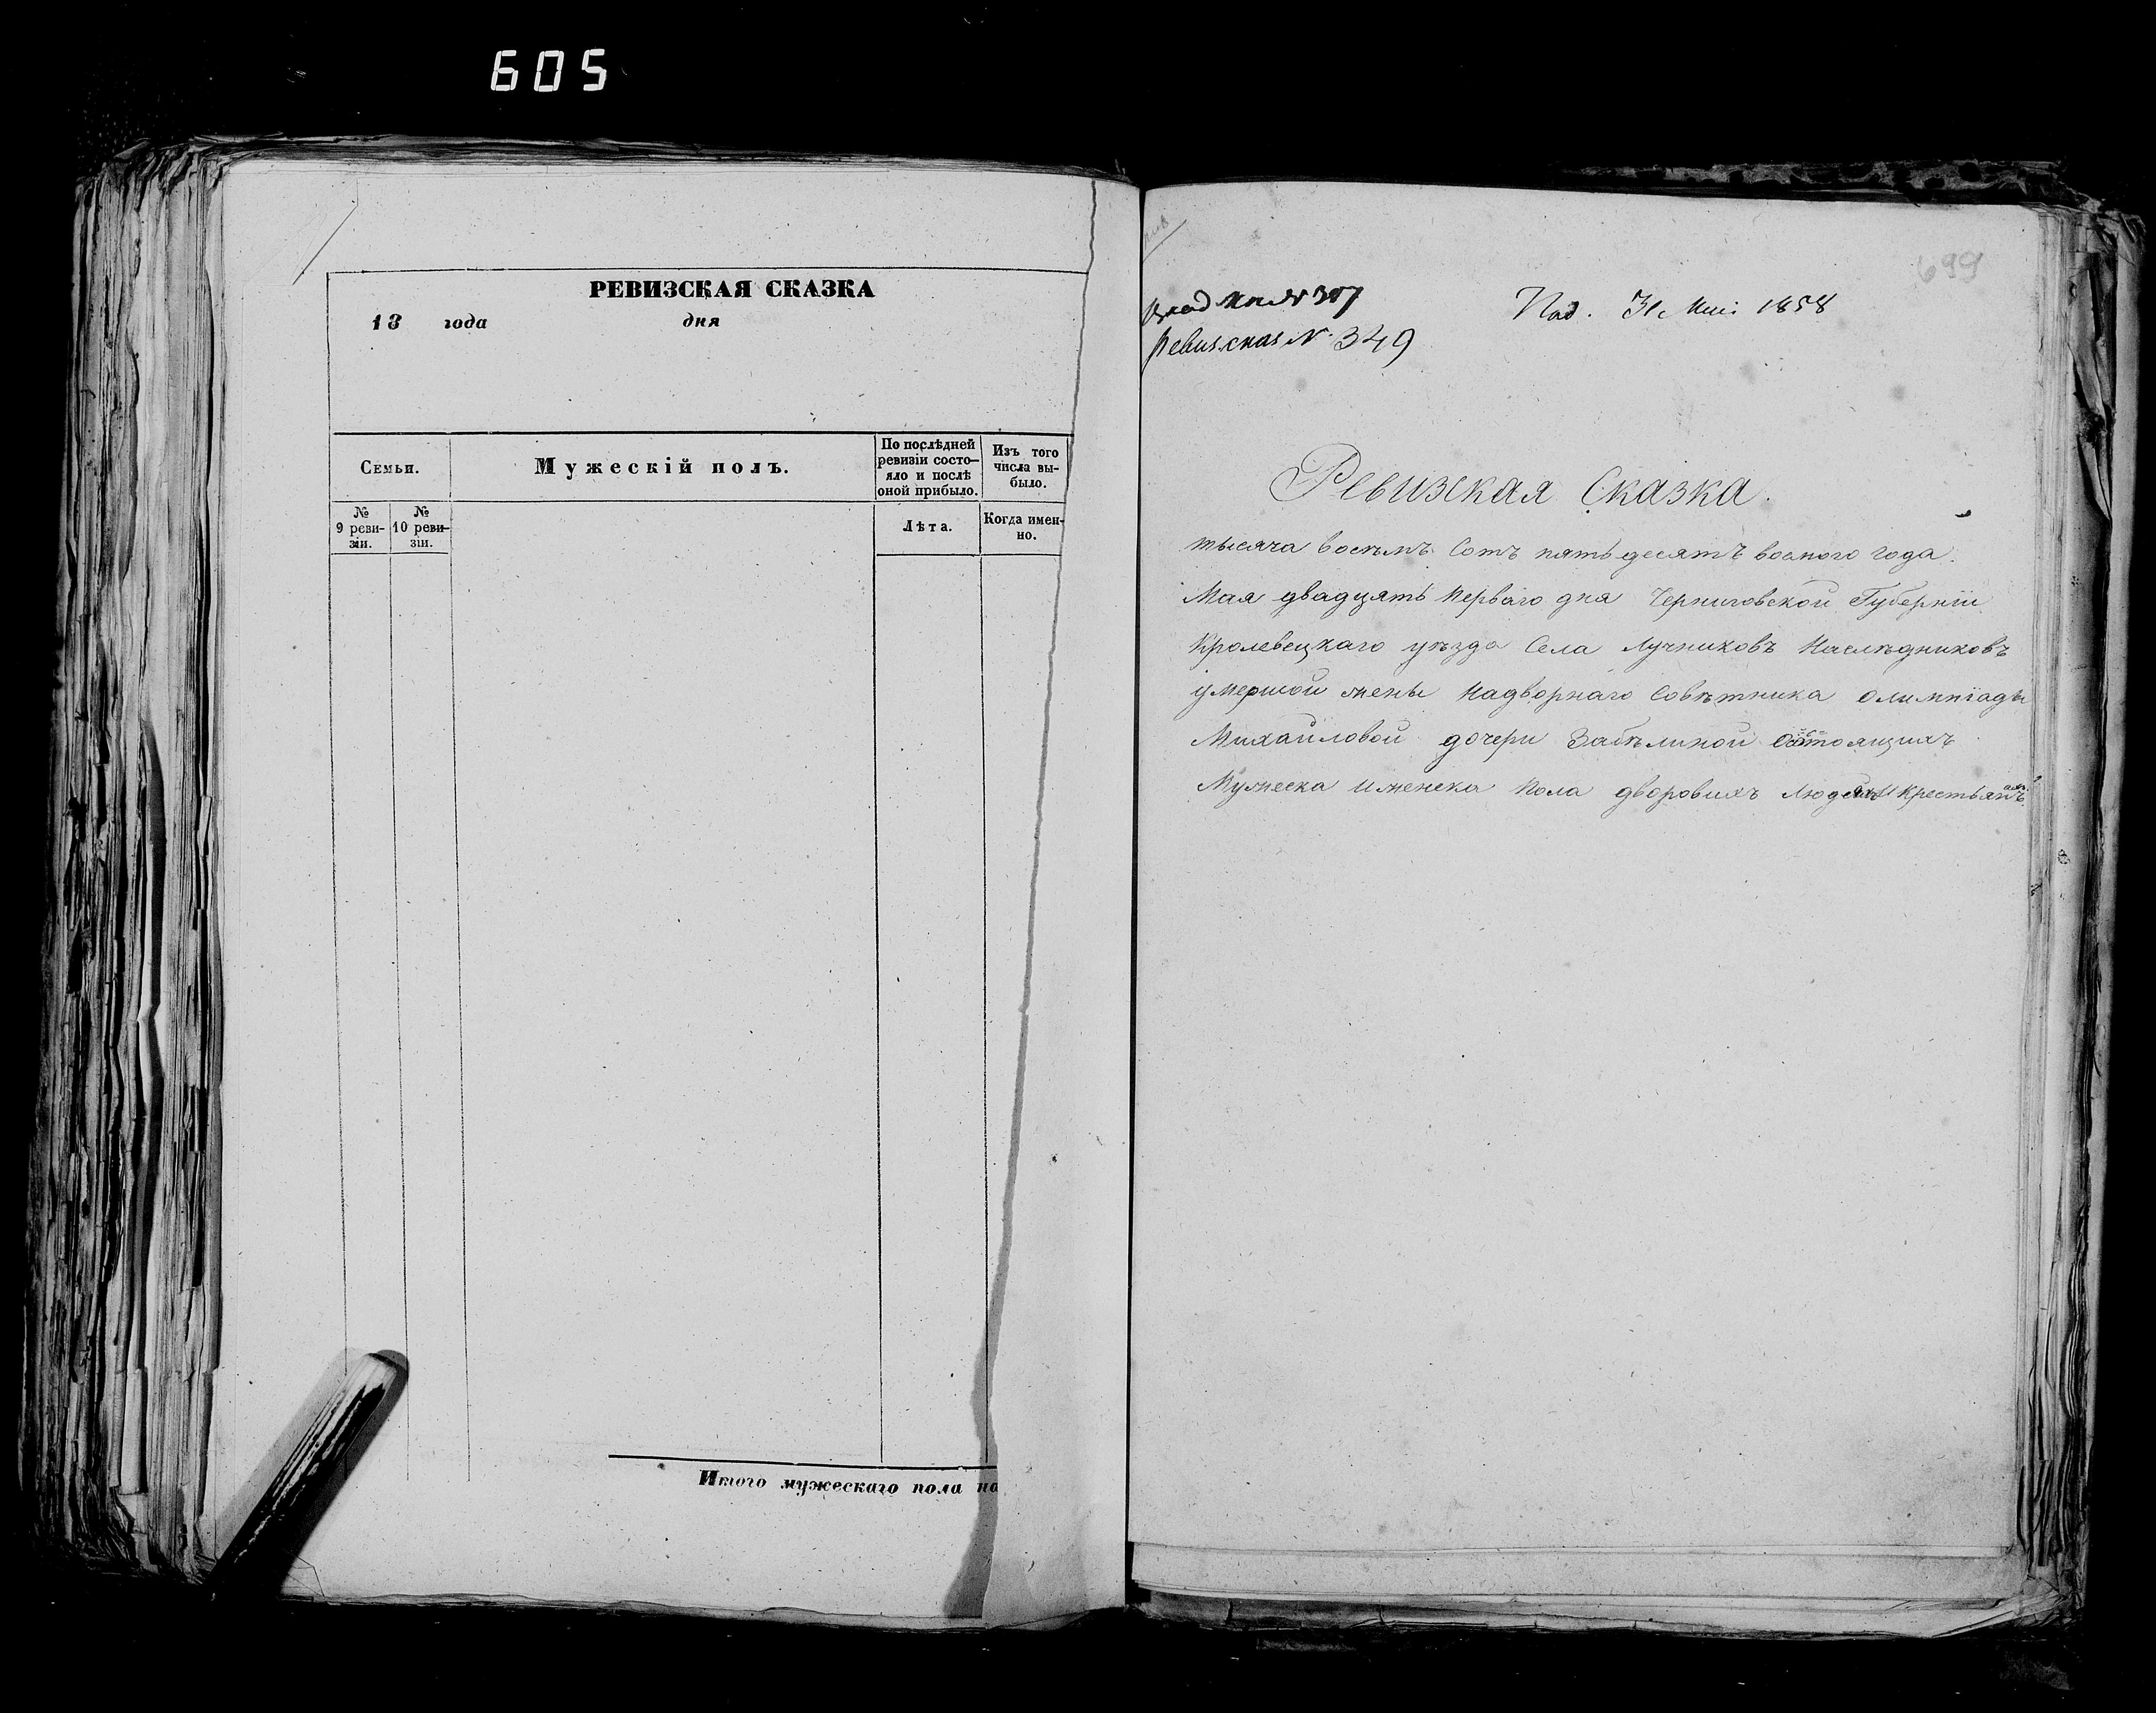 605
РЕВИЗСКАЯ СКАЗКА
18 года дня
Семьи.
Мужескій полъ.
По послѣдней ревизіи состо-
яло и послѣ оной прибыло.
Изъ того числа вы-
было.
№ 9 реви-
зіи.
№ 10 реви-
зіи.
Лѣта.
Когда имен-
но.
Итого мужескаго пола на
699
№ 307
Над. 31 Маі 1858
Ревизская № 349
Ревизская Сказка.
тысяча восѣмъ сотъ пятьдесятъ восмого года.
Мая двадцять перваго дня Черниговской Губерніи
Кролевецкаго уѣзда Села Лучниковъ Наслѣдниковъ
умершой жены Надворнаго Совѣтника Олимпіады
Михайловой дочери Забѣлиной состоящихъ
Мужеска и женска пола дворовыхъ людяхъ и крестьянахъ